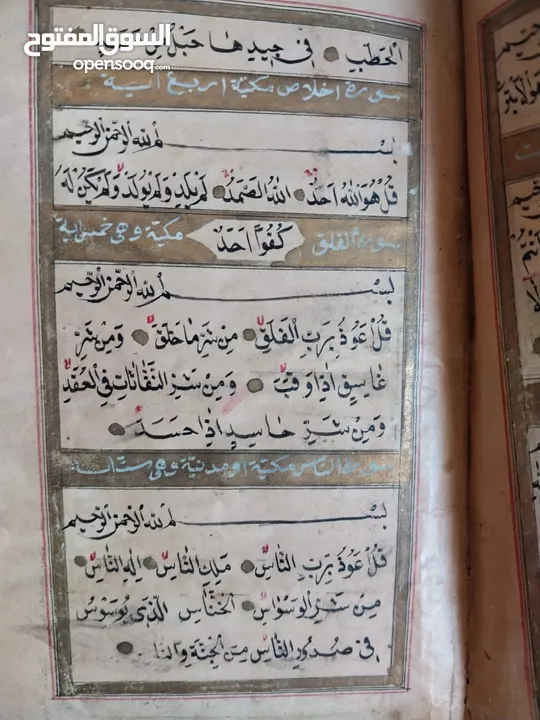 السوق المفتوح
opensooq.com
الحَطَبِ فى جِيدِهَا حَبْلٌ مِنْ
سورة اخلاص مكية اربع اية
بســـم الله الرحمن الرحيم
قُلْ هُوَ اللهُ اَحَدٌ اللهُ الصَّمَدُ لَمْ يَلِدْ وَلَمْ يُولَدْ وَلَمْ يَكُنْ لَهُ
سورة الفلق كُفُوًا اَحَدٌ مكية وهى خمس اية
بســـم الله الرحمن الرحيم
قُلْ عَوُذُ بِرَبِّ الْفَلَقِ مِنْ شَرِّ مَا خَلَقَ وَمِنْ شَرِّ
غَاسِقٍ اِذَا وَقَبَ وَمِنْ شَرِّ النَّفَّاثَاتِ فِى الْعُقَدِ
وَمِنْ شَرِّ حَاسِدٍ اِذَا حَسَدَ
سورة الناس مكية او مدنية وهى ست اية
بســـم الله الرحمن الرحيم
قُلْ عَوُذُ بِرَبِّ النَّاسِ مَلِكِ النَّاسِ اِلٰهِ النَّاسِ
مِنْ شَرِّ الْوَسْوَاسِ الْخَنَّاسِ الَّذِى يُوَسْوِسُ
فى صُدُورِ النَّاسِ مِنَ الْجِنَّةِ وَالنَّا